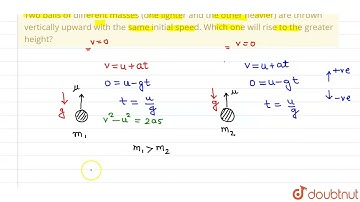 Two balls of different masses (one lighter and the other heavier) are thrown
vertically upward with the same initial speed. Which one will rise to the greater
height?
v=0
v=0
v=u+at
v=u+at
0=u-gt
0=u-gt
t=u/g
t=u/g
v²-u²=2as
u
g
m₁
u
g
m₂
↑+ve
↓-ve
m₁>m₂
doubtnut